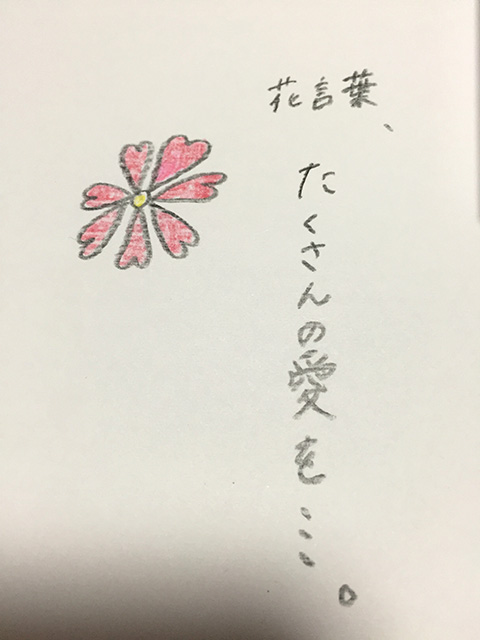 花言葉、
たくさんの愛を…。